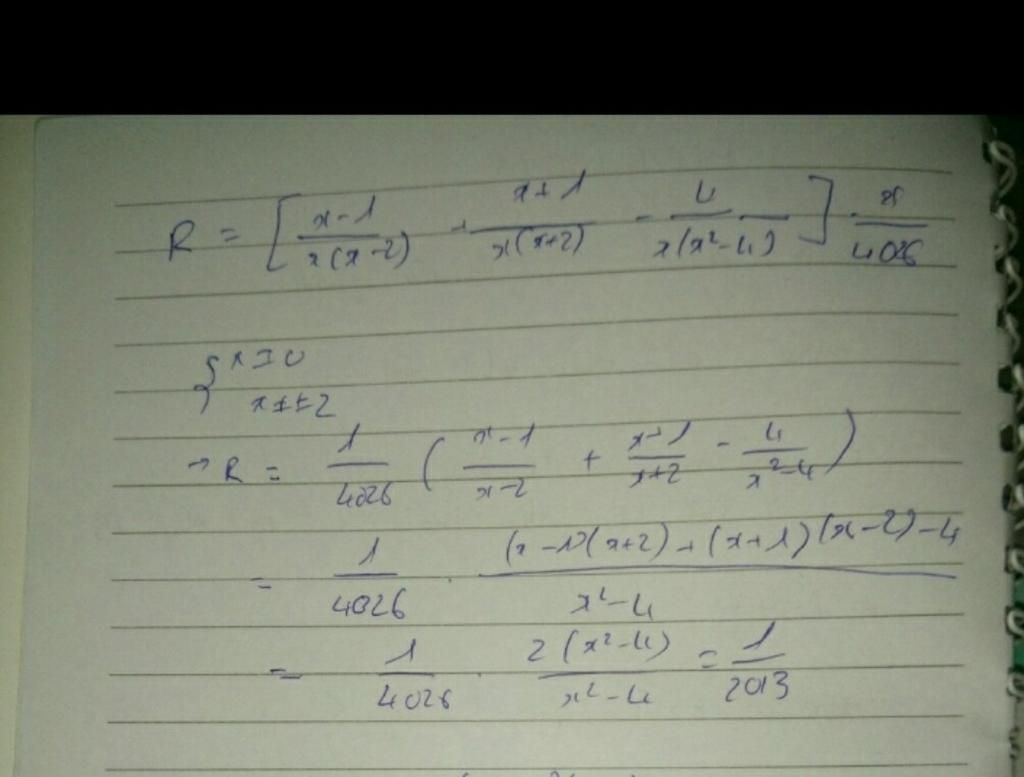 R = [ (x-1)/(x(x-2)) + (x+1)/(x(x+2)) - 4/(x(x²-4)) ] · x/4026
{ x≠0
x≠±2
→ R = 1/4026 ( (x-1)/(x-2) + (x+1)/(x+2) - 4/(x²-4) )
= 1/4026 · ((x-1)(x+2)+(x+1)(x-2)-4)/(x²-4)
= 1/4026 · 2(x²-4)/(x²-4) = 1/2013